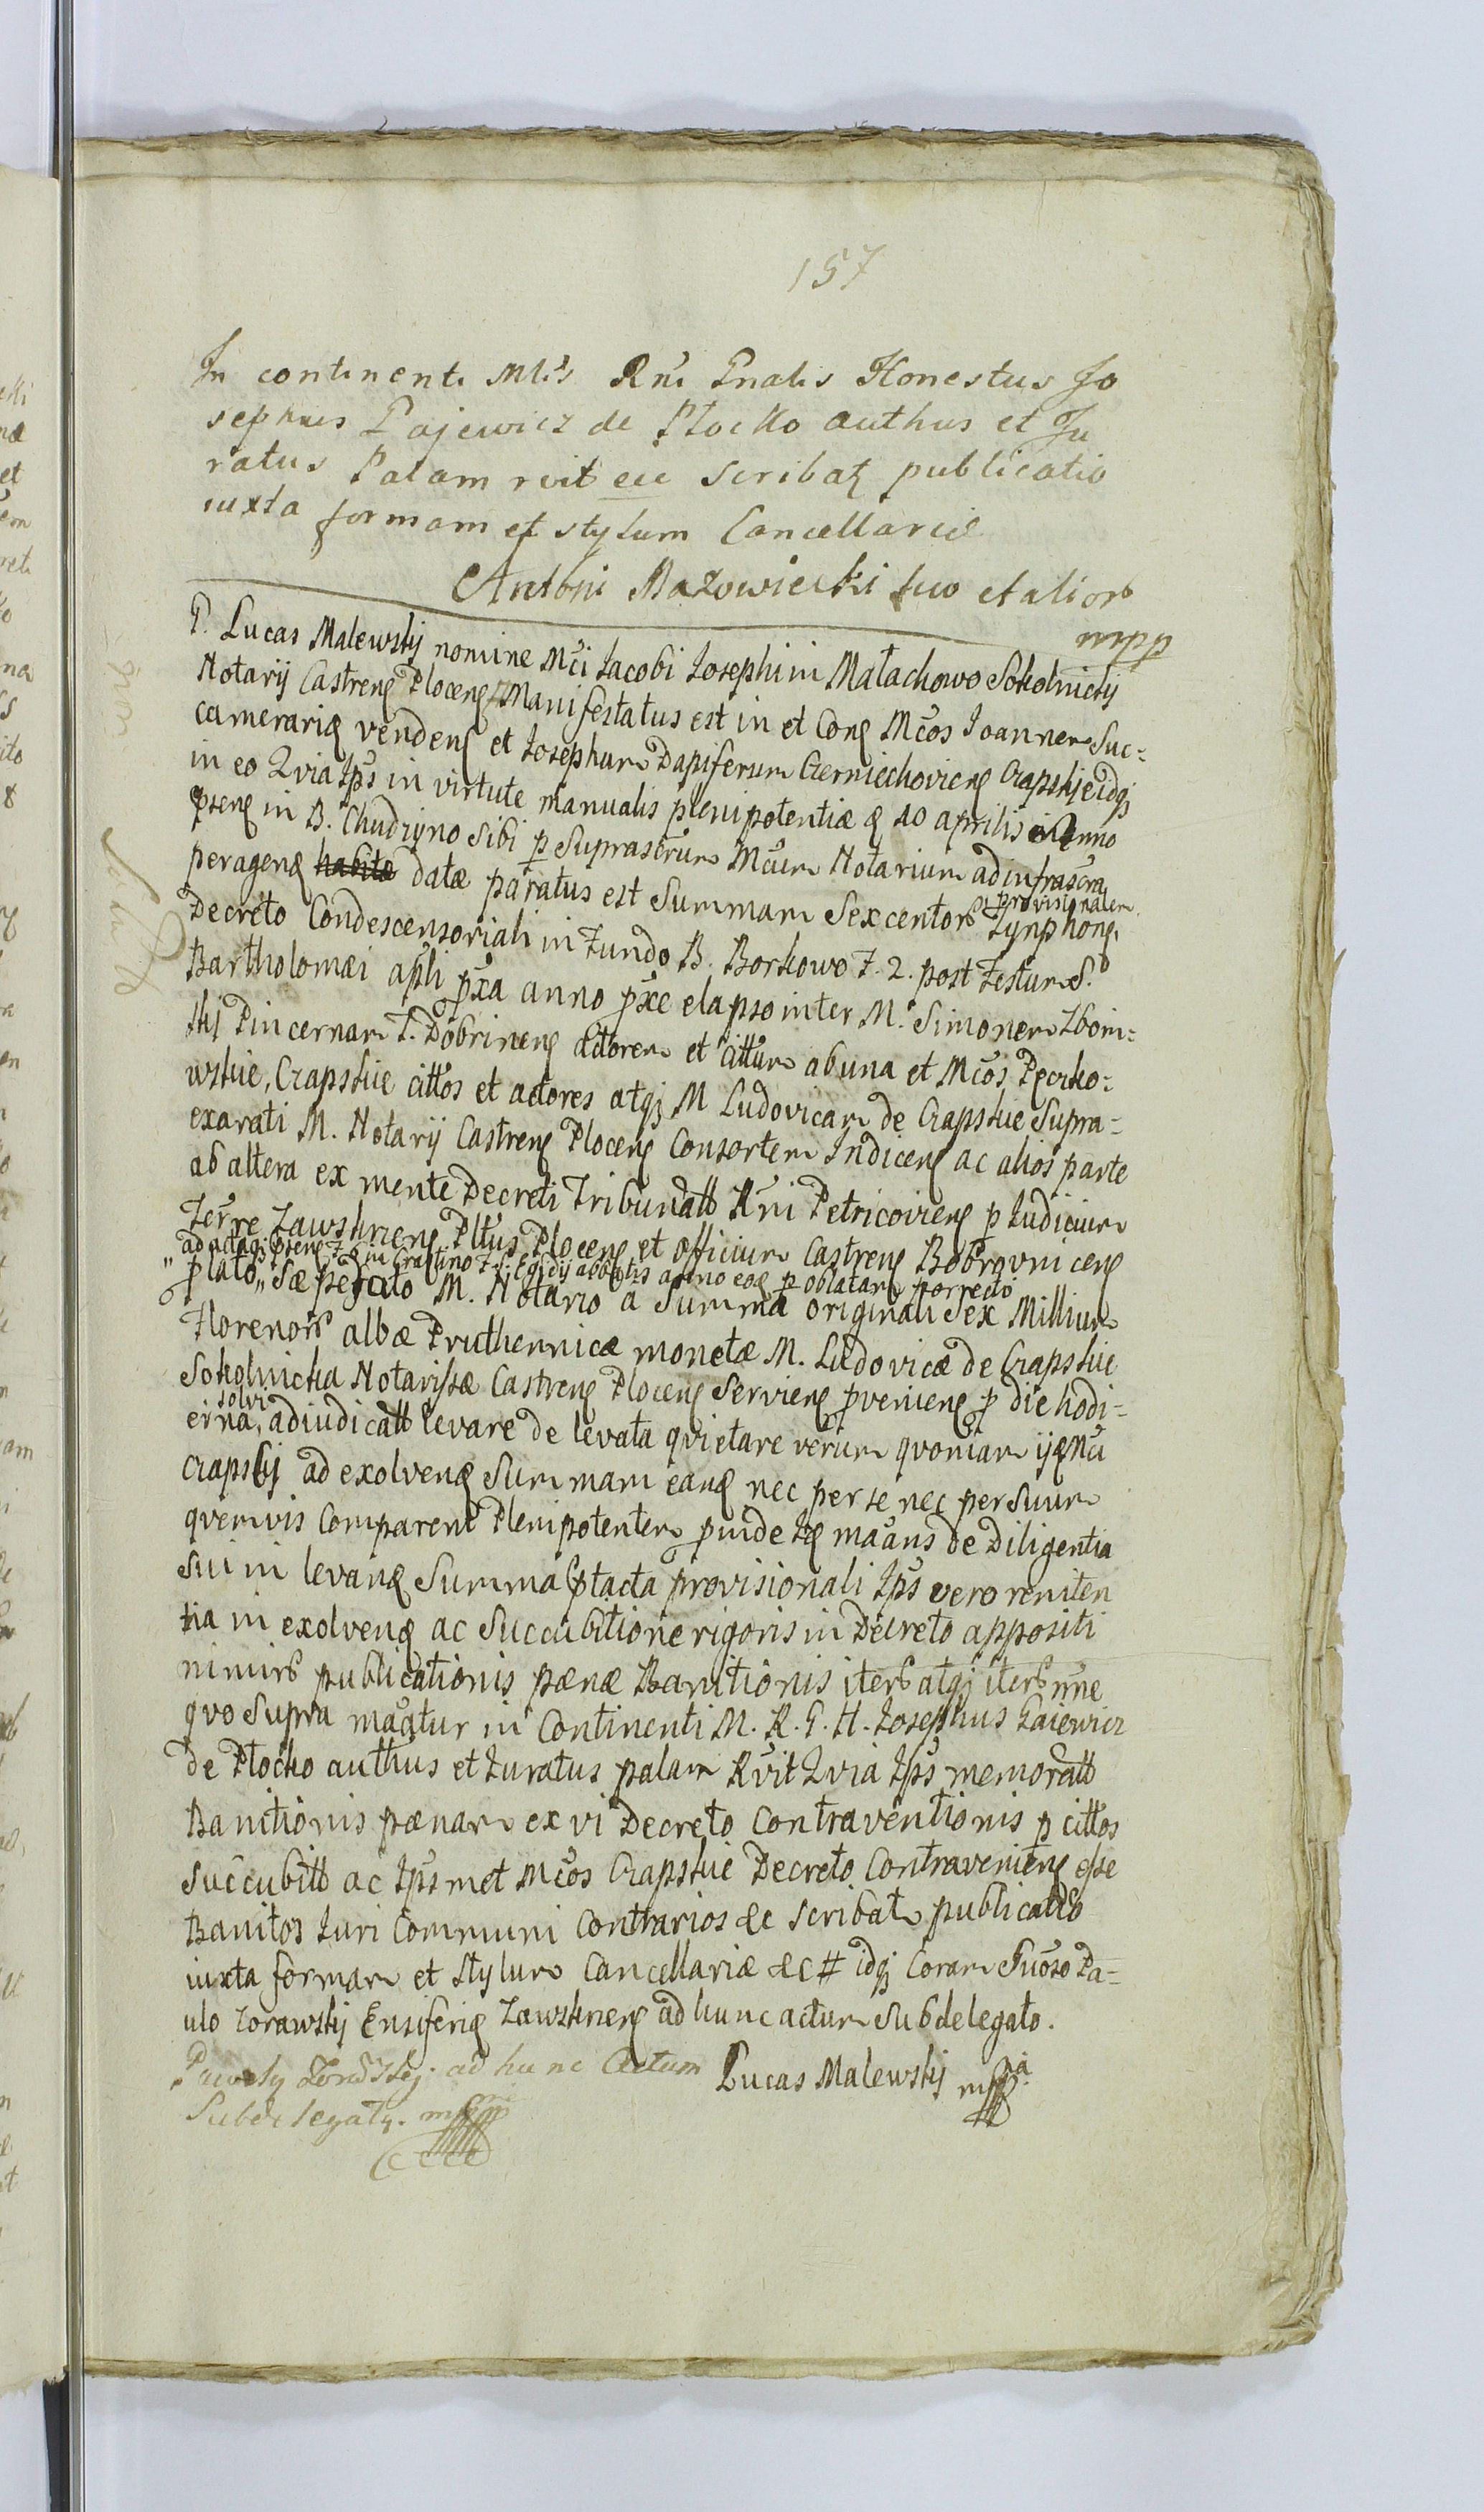 157
In continenti Mlis Rni Gnalis Honestus Jo
sephus Gajewicz de Plocko authus et Ju
ratus Palam rvit etc scribat publicatio
iuxta formam et stylum Cancellariæ
Antoni Mazowiecki suo et alior
mpp
G. Lucas Malewskij nomine Mci Jacobi Josephi in Małachowo Sokolnickij
Notarij Castren Plocen Manifestatus est in et Con Mcos Joannem Suc=
camerarid venden et Josephum Dapiferum Czerniechovien Czapskje idq
in eo Qvia Ips in virtute manualis plenipotentiæ d 10 aprilis in Anno
psen in B. Chudzyno sibi p suprascrum Mcum Notarium ad infrascra
peragend habitæ datæ paratus est Summam Sexcentor Tynphon.
provisionalem
Decreto Condescensoriali in Fundo B. Borkowo F. 2. post Festum S.
Bartholomæi apli pxa anno pxe elapso inter M. Simonem Zboin=
skij Pincernam T. Dobrinen actorem et cittum ab una et Mcos Pęczko=
wskie, Czapskie cittos et actores atq M Ludovicam de Czapskie Supra=
exarati M. Notarij Castren Plocen Consortem Indicen ac alios parte
ab altera ex mente Decreti Tribunatt Rni Petricovien p Judicium
Terre Zawskrnen Pltus Plocen et officium Castren Bobrownicen
ad actaq psen F. in Crastino F. S. Egidij abbatis anno eod p oblatam porrecto
" plato " Sæpefato M. Notario a Summa originali Sex Millium
Florenor albæ Pruthennicæ monetæ M. Ludovicæ de Czapskie
Sokolnicka Notarissæ Castren Plocen Servien pvenien p die hodi=
solvi
erna, adiudicatt levare de levata qvietare verum qvoniam ijd Mci
Czapskij ad exolvend Summam eand nec per se nec per Suum
qvemvis Comparent Plenipotentem pinde Id maans de Diligentia
Sui in levand Summa ptacta provisionali Ips vero reniten
tia in exolvend ac Succubitione rigoris in Decreto appositi
nimir publicationis pænæ Banitionis iter atq iter nne
qvo Supra maatur in Continenti M. R. G. H. Josephus Gaiewicz
de Plocko authus et Juratus palam Rvit Qvia Ips memoratt
Banitionis pænam ex vi Decreto Contraventionis p cittos
Succubitt ac Ips met Mcos Czapskie Decreto Contravenien esse
Banitos Juri Communi Contrarios &c scribat publicatio
iuxta formam et stylum Cancellariæ &c # idq Coram Gnoso Pa=
ulo Zorawskij Ensiferid Zawskrnen ad hunc actum Subdelegato.
Lucas Malewskij mp
Paweły Zorawskij ad hunc Actum
Subdelegat. mp